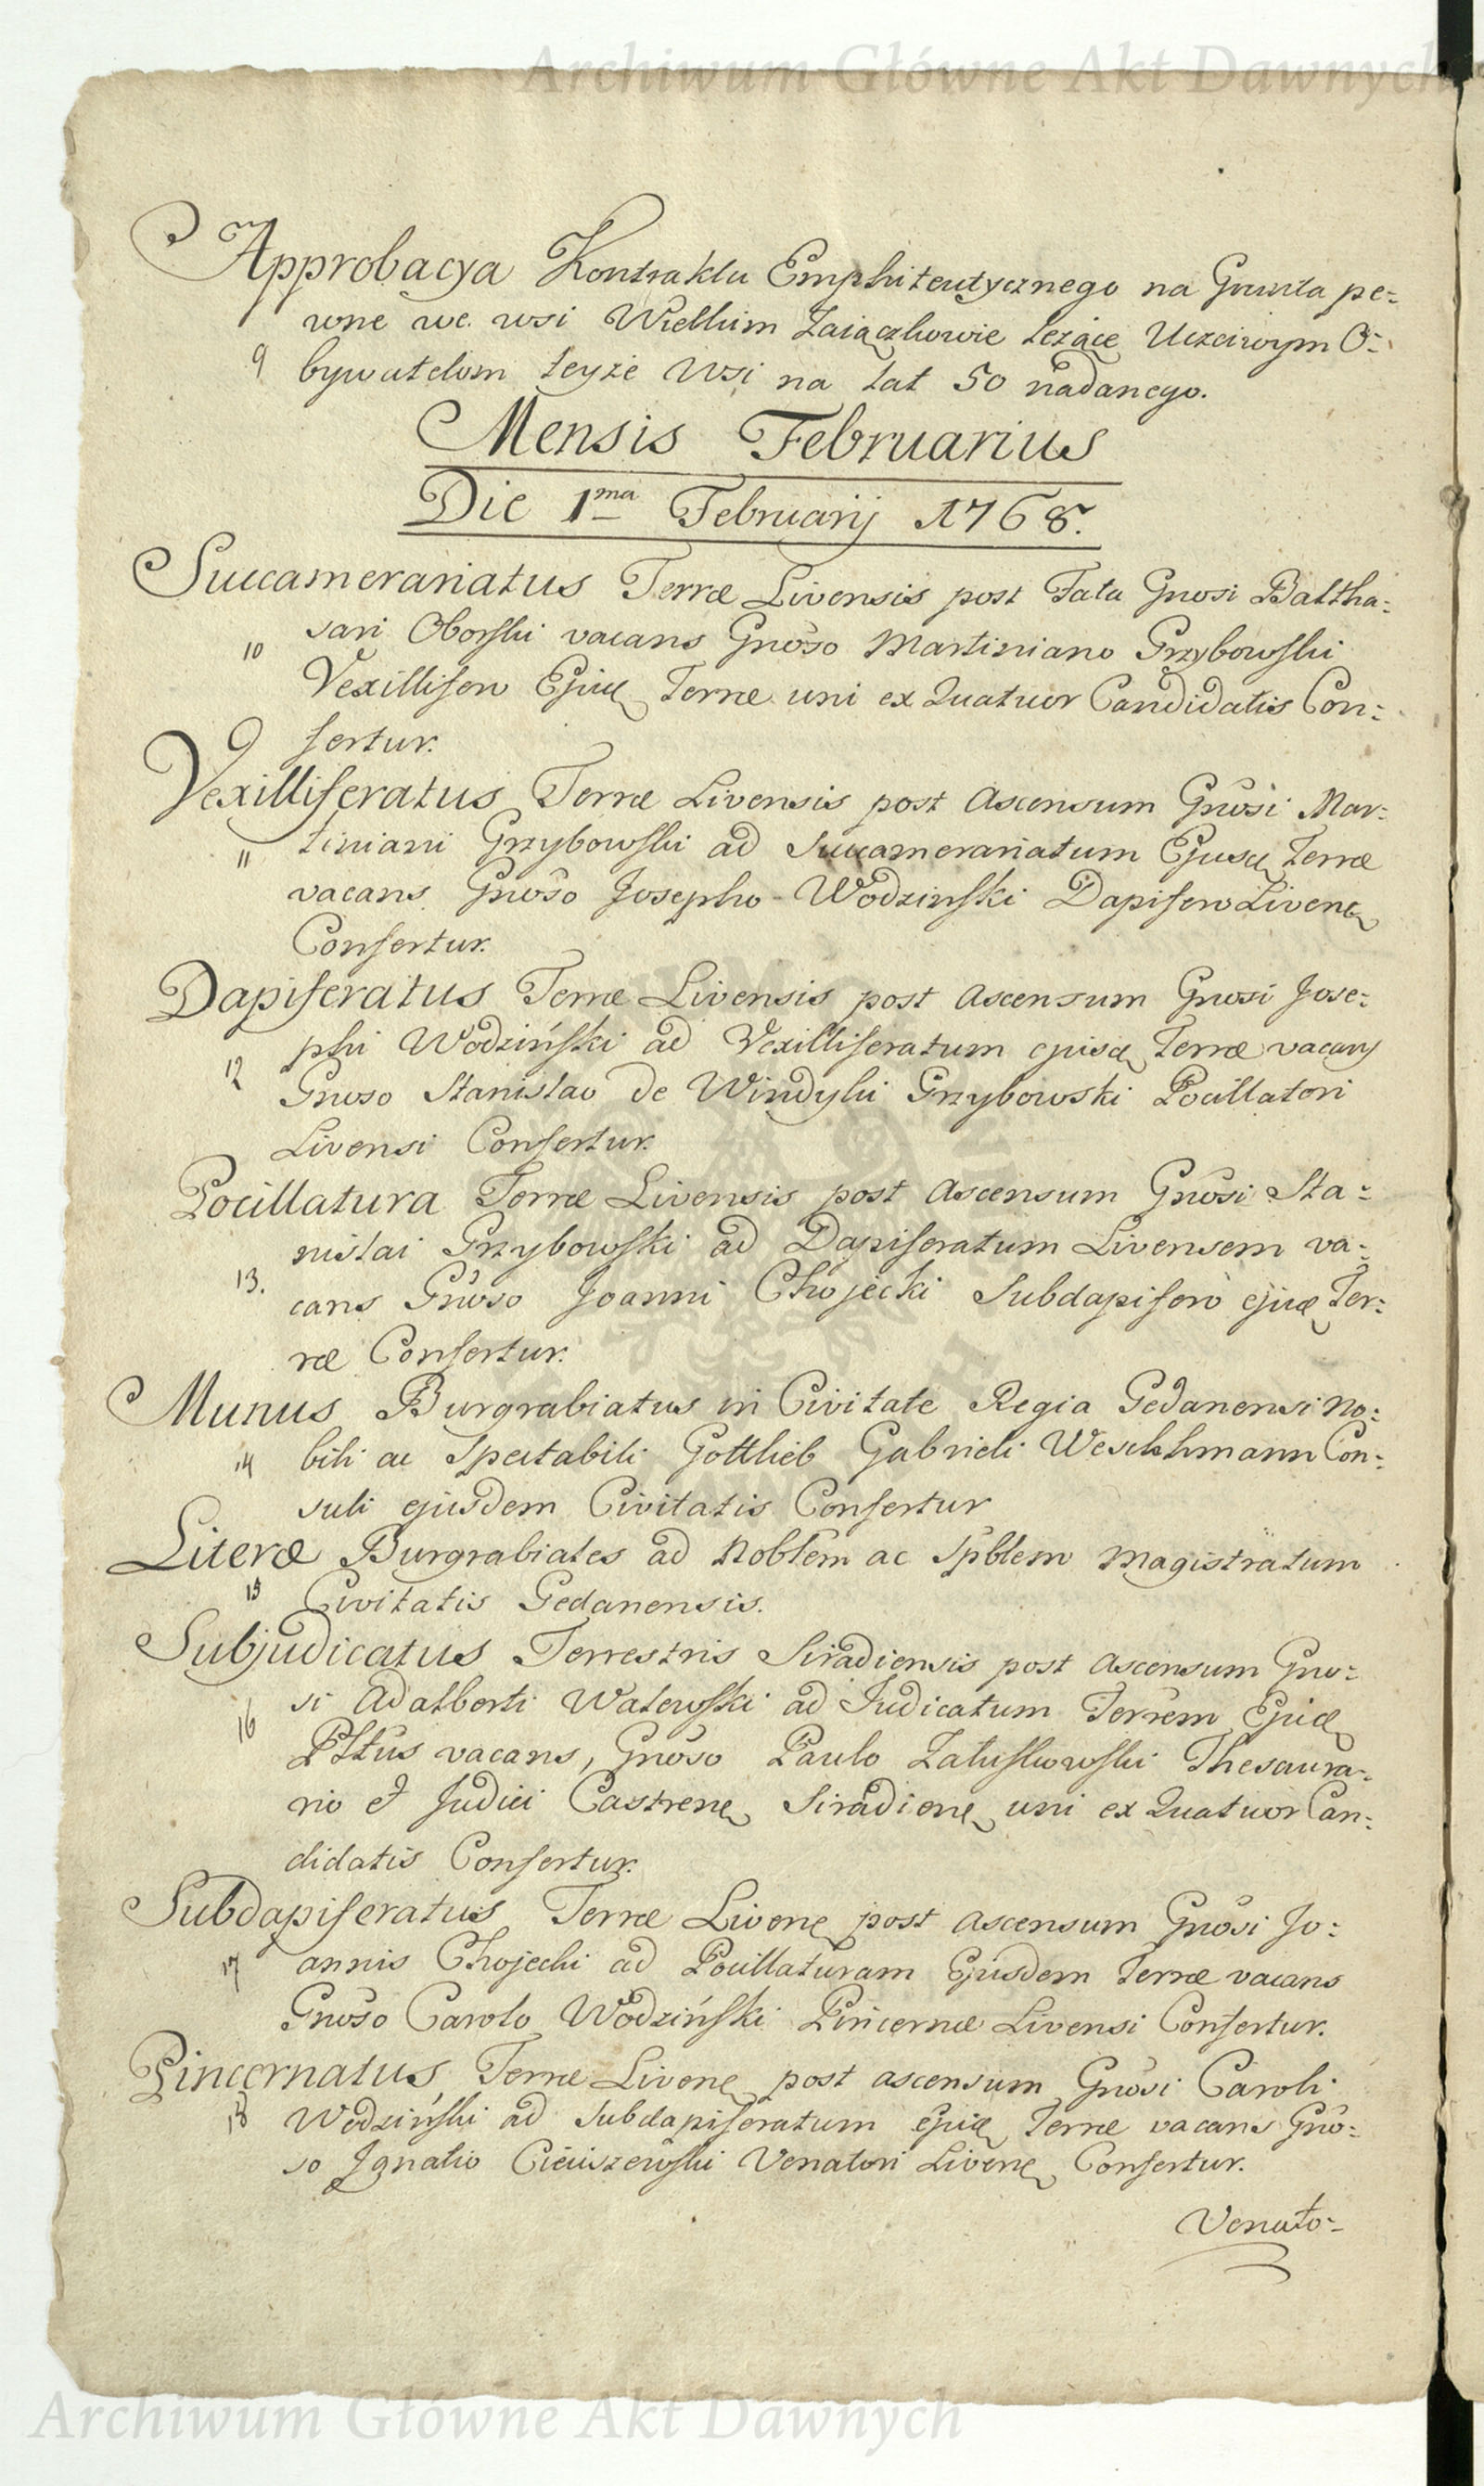 Archiwum Główne Akt Dawnych
Approbacya Kontraktu Emphiteutycznego na Grunta pe=
wne we wsi Wielkim Zaiączkowie leżące Uczciwym O=
9 bywatelom teyże wsi na lat 50 nadanego.
Mensis Februarius
Die 1ma Februarij 1768.
Succamerariatus Terræ Livensis post Fata Gnosi Baltha=
10 sari Oborski vacans Gnoso Martiniano Grzybowski
Vexillifero Ejusq Terræ uni ex Quatuor Candidatis Con=
fertur.
Vexilliferatus Terræ Livensis post Ascensum Gnosi Mar=
11 tiniani Grzybowski ad Succamerariatum Ejusq Terræ
vacans Gnoso Josepho Wodzinski Dapifero Livenq
Confertur.
Dapiferatus Terræ Livensis post Ascensum Gnosi Jose=
12 phi Wodziński ad Vexilliferatum ejusq Terræ vacans
Gnoso Stanislao de Windyki Grzybowski Pocillatori
Livensi Confertur.
Pocillatura Terræ Livensis post Ascensum Gnosi Sta=
nislai Grzybowski ad Dapiferatum Livensem va=
13. cans Gnoso Joanni Chojecki Subdapifero ejusq Ter=
ræ Confertur.
Munus Burgrabiatus in Civitate Regia Gedanensi No=
14 bili ac Spectabili Gottlieb Gabrieli Weickhmann Con=
suli ejusdem Civitatis Confertur
Literæ Burgrabiales ad Noblem ac Spblem Magistratum
15 Civitatis Gedanensis.
Subjudicatus Terrestris Siradiensis post Ascensum Gno=
16 si Adalberti Walewski ad Judicatum Terrem Ejusq
Plttus vacans, Gnoso Paulo Zaluskowski Thesaura=
rio et Judici Castrenq Siradienq uni ex Quatuor Can=
didatis Confertur.
Subdapiferatus Terræ Livenq post Ascensum Gnosi Jo=
17 annis Chojecki ad Pocillaturam Ejusdem Terræ vacans
Gnoso Carolo Wodziński Pincernæ Livensi Confertur.
Pincernatus Terræ Livenq post ascensum Gnosi Caroli
18 Wodziński ad Subdapiferatum Ejusq Terræ vacans Gno=
so Ignatio Cieciszewski Venatori Livenq Confertur.
Venato=
Archiwum Główne Akt Dawnych